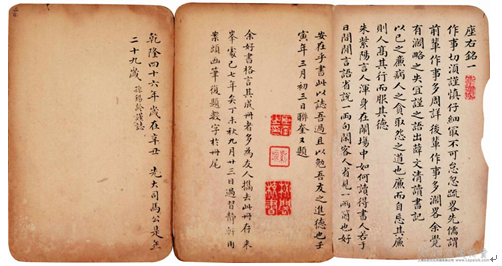 座右銘一
作事切須謹慎仔細最不可怠忽疏畧先儒謂
前輩作事多周詳後輩作事多濶畧余覺
有濶略之失宜謹之語出薛文清讀書記
以己之廉病人之貪取怨之道也廉而自忘其廉
則人高其行而服其德
朱紫陽言人渾身在鬧場中如何讀得書人若于
日間閒言語省說一兩句閒客人省見一兩箇也好
安在乎書此以誌吾過且以勉吾友之進德也壬
寅年三月初三日聯奎又題
余好書格言其成冊者多為友人攜去此冊存來
家已七年矣丁未秋九月廿三日過習靜新
案頭西筆後題數字於冊尾
乾隆四十六年歲在辛丑 先大司馬公是年
二十九歲
謹誌